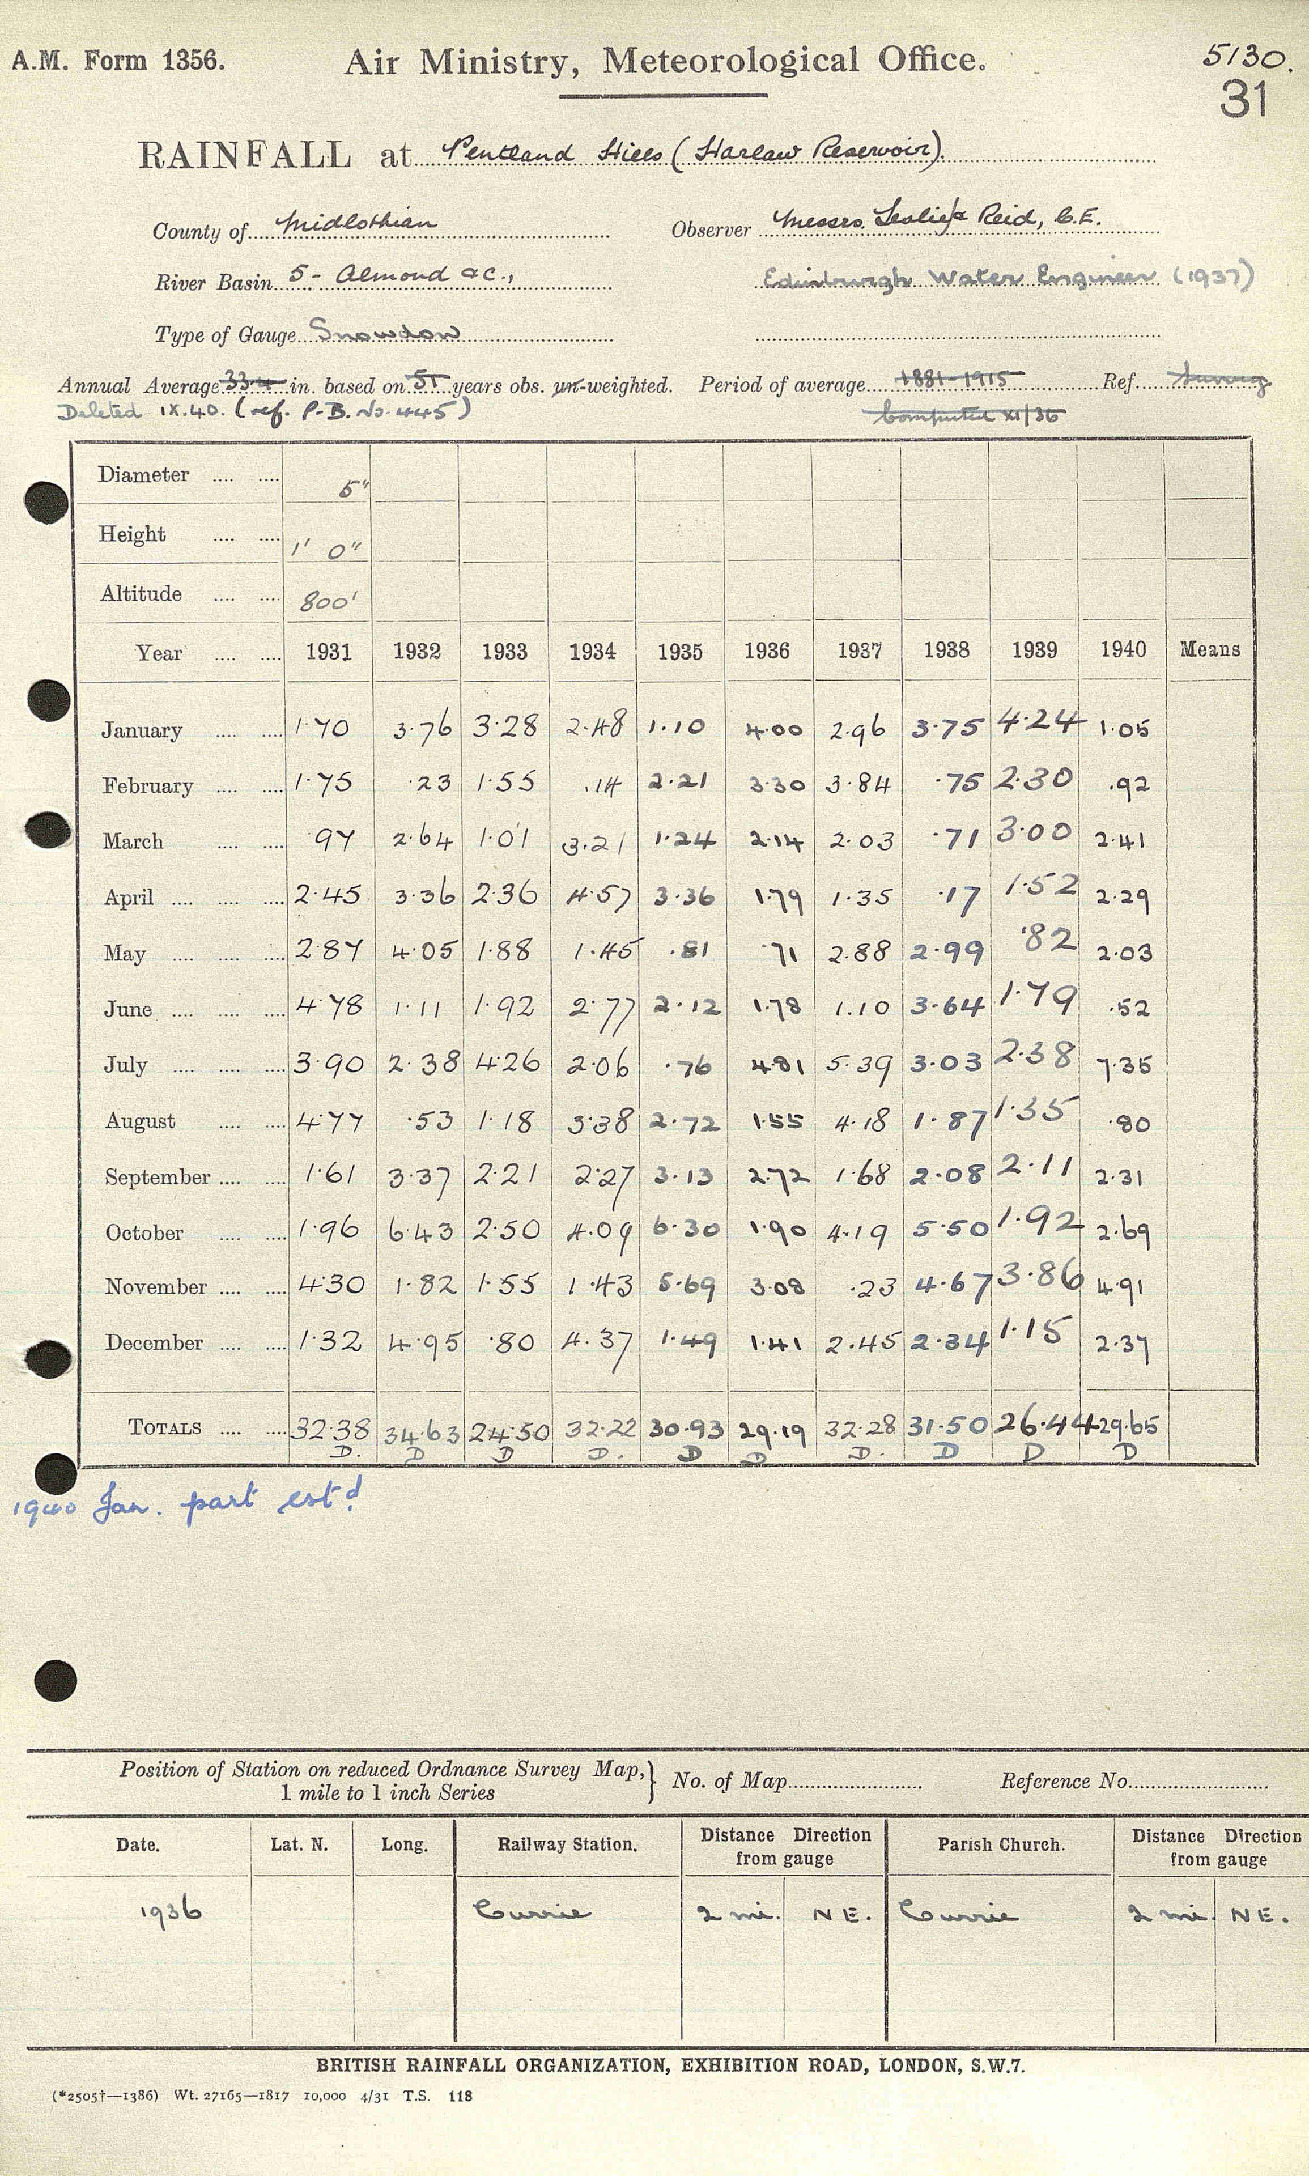 A.M. Form 1356. Air Ministry, Meteorological Office. 5130.
31
RAINFALL at Pentland Hills (Harlaw Reservoir).
County of Midlothian Observer Messrs. Leslie & Reid, C.E.
River Basin 5 - Almond &c., Edinburgh Water Engineer (1937)
Type of Gauge Snowdon
Annual Average 33.4 in. based on 51 years obs. un-weighted. Period of average 1881-1915 Ref.
Deleted IX.40. (ref. P.B. No. 445) Computed XI/36
Diameter .... .... 5"
Height .... .... 1' 0"
Altitude .... .... 800'
Year .... .... 1931 1932 1933 1934 1935 1936 1937 1938 1939 1940 Means
January .... .... 1.70 3.76 3.28 2.48 1.10 4.00 2.96 3.75 4.24 1.05
February .... .... 1.75 .23 1.55 .14 2.21 3.30 3.84 .75 2.30 .92
March .... .... .97 2.64 1.01 3.21 1.24 2.14 2.03 .71 3.00 2.41
April .... .... .... 2.45 3.36 2.36 4.57 3.36 1.79 1.35 .17 1.52 2.29
May .... .... .... 2.87 4.05 1.88 1.45 .81 .71 2.88 2.99 .82 2.03
June .... .... .... 4.78 1.11 1.92 2.77 2.12 1.78 1.10 3.64 1.79 .52
July .... .... .... 3.90 2.38 4.26 2.06 .76 4.81 5.39 3.03 2.38 7.35
August .... .... 4.77 .53 1.18 3.38 2.72 1.55 4.18 1.87 1.35 .80
September .... .... 1.61 3.37 2.21 2.27 3.13 2.72 1.68 2.08 2.11 2.31
October .... .... 1.96 6.43 2.50 4.09 6.30 1.90 4.19 5.50 1.92 2.69
November .... .... 4.30 1.82 1.55 1.43 5.69 3.08 .23 4.67 3.86 4.91
December .... .... 1.32 4.95 .80 4.37 1.49 1.41 2.45 2.34 1.15 2.37
TOTALS .... .... 32.38 34.63 24.50 32.22 30.93 29.19 32.28 31.50 26.44 29.65
D. D D D. D D D. D D D
1940 Jan. part estd.
Position of Station on reduced Ordnance Survey Map, } No. of Map Reference No.
1 mile to 1 inch Series
Date. Lat. N. Long. Railway Station. Distance Direction from gauge Parish Church. Distance Direction from gauge
1936 Currie 2 mi. NE. Currie 2 mi. NE.
BRITISH RAINFALL ORGANIZATION, EXHIBITION ROAD, LONDON, S.W.7.
(*2505†—1386) Wt. 27165—1817 10,000 4/31 T.S. 118